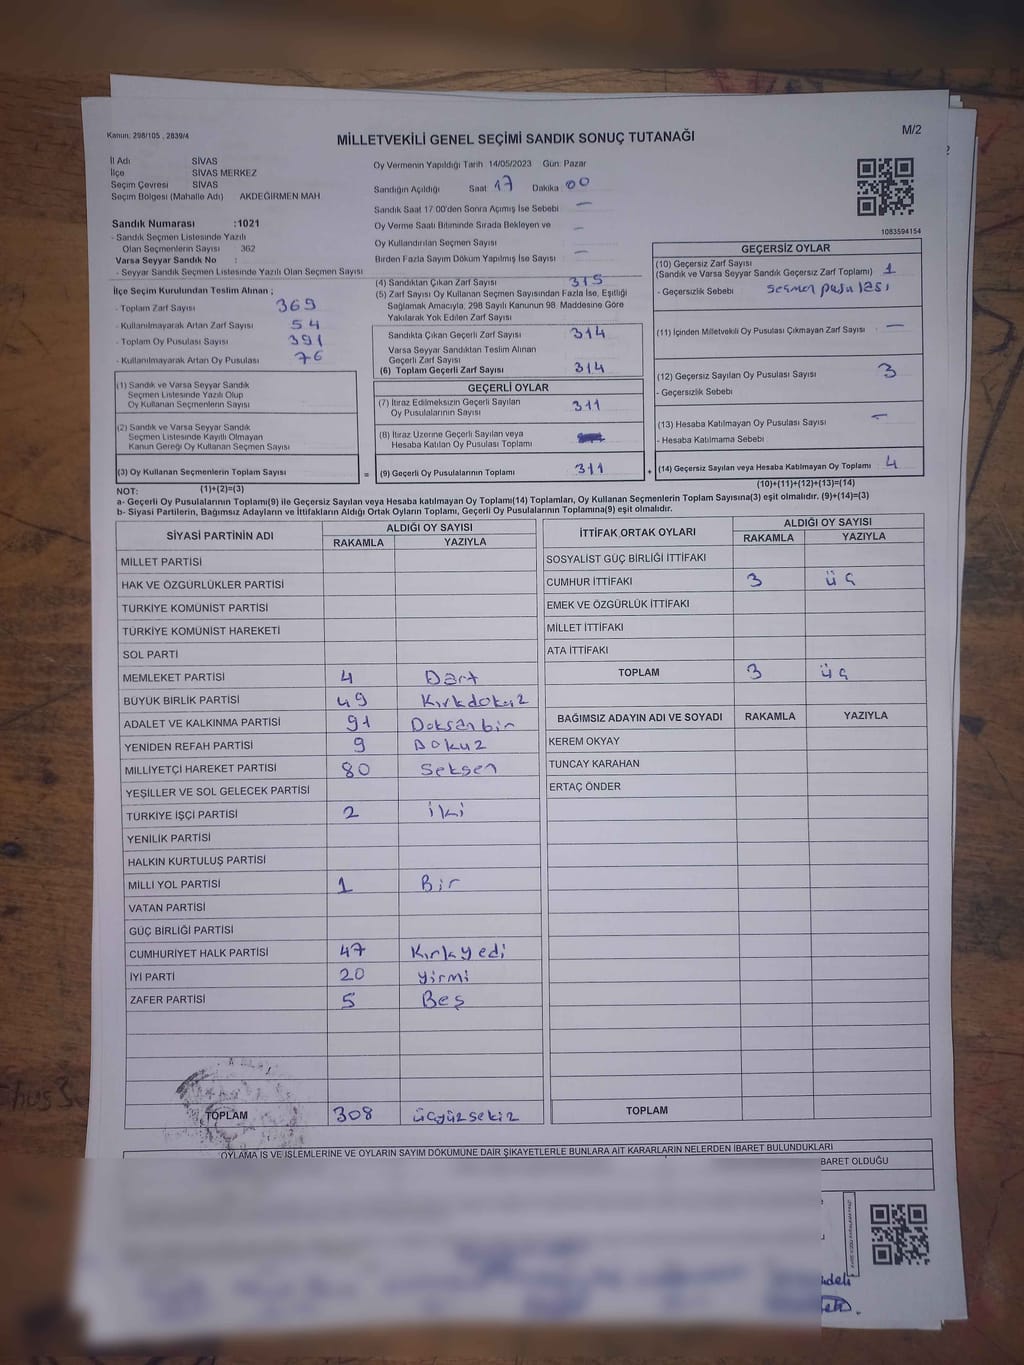 Kanun: 298/105 , 2839/4
MİLLETVEKİLİ GENEL SEÇİMİ SANDIK SONUÇ TUTANAĞI
M/2
İl Adı SİVAS
İlçe SİVAS MERKEZ
Seçim Çevresi SİVAS
Seçim Bölgesi (Mahalle Adı) AKDEĞİRMEN MAH
Sandık Numarası :1021
- Sandık Seçmen Listesinde Yazılı
Olan Seçmenlerin Sayısı 362
Varsa Seyyar Sandık No :
- Seyyar Sandık Seçmen Listesinde Yazılı Olan Seçmen Sayısı
Oy Vermenin Yapıldığı Tarih 14/05/2023 Gün: Pazar
Sandığın Açıldığı Saat 17 Dakika 00
Sandık Saat 17 00'den Sonra Açımış İse Sebebi —
Oy Verme Saati Bitiminde Sırada Bekleyen ve
Oy Kullandırılan Seçmen Sayısı —
Birden Fazla Sayım Döküm Yapılmış İse Sayısı —
1083594154
İlçe Seçim Kurulundan Teslim Alınan ;
- Toplam Zarf Sayısı 369
- Kullanılmayarak Artan Zarf Sayısı 54
- Toplam Oy Pusulası Sayısı 391
- Kullanılmayarak Artan Oy Pusulası 76
(1) Sandık ve Varsa Seyyar Sandık
Seçmen Listesinde Yazılı Olup
Oy Kullanan Seçmenlerin Sayısı
(2) Sandık ve Varsa Seyyar Sandık
Seçmen Listesinde Kayıtlı Olmayan
Kanun Gereği Oy Kullanan Seçmen Sayısı
(3) Oy Kullanan Seçmenlerin Toplam Sayısı =
(4) Sandıktan Çıkan Zarf Sayısı 315
(5) Zarf Sayısı Oy Kullanan Seçmen Sayısından Fazla İse, Eşitliği
Sağlamak Amacıyla, 298 Sayılı Kanunun 98. Maddesine Göre
Yakılarak Yok Edilen Zarf Sayısı
Sandıkta Çıkan Geçerli Zarf Sayısı 314
Varsa Seyyar Sandıktan Teslim Alınan
Geçerli Zarf Sayısı
(6) Toplam Geçerli Zarf Sayısı 314
GEÇERLİ OYLAR
(7) İtiraz Edilmeksizin Geçerli Sayılan
Oy Pusulalarının Sayısı 311
(8) İtiraz Üzerine Geçerli Sayılan veya
Hesaba Katılan Oy Pusulası Toplamı
(9) Geçerli Oy Pusulalarının Toplamı 311 +
GEÇERSİZ OYLAR
(10) Geçersiz Zarf Sayısı
(Sandık ve Varsa Seyyar Sandık Geçersiz Zarf Toplamı) 1
- Geçersizlik Sebebi seçmen pusulası
(11) İçinden Milletvekili Oy Pusulası Çıkmayan Zarf Sayısı —
(12) Geçersiz Sayılan Oy Pusulası Sayısı 3
- Geçersizlik Sebebi
(13) Hesaba Katılmayan Oy Pusulası Sayısı —
- Hesaba Katılmama Sebebi
(14) Geçersiz Sayılan veya Hesaba Katılmayan Oy Toplamı 4
NOT: (1)+(2)=(3) (10)+(11)+(12)+(13)=(14)
a- Geçerli Oy Pusulalarının Toplamı(9) ile Geçersiz Sayılan veya Hesaba katılmayan Oy Toplamı(14) Toplamları, Oy Kullanan Seçmenlerin Toplam Sayısına(3) eşit olmalıdır. (9)+(14)=(3)
b- Siyasi Partilerin, Bağımsız Adayların ve İttifakların Aldığı Ortak Oyların Toplamı, Geçerli Oy Pusulalarının Toplamına(9) eşit olmalıdır.
SİYASİ PARTİNİN ADI ALDIĞI OY SAYISI
RAKAMLA YAZIYLA
MİLLET PARTİSİ
HAK VE ÖZGÜRLÜKLER PARTİSİ
TÜRKİYE KOMÜNİST PARTİSİ
TÜRKİYE KOMÜNİST HAREKETİ
SOL PARTİ
MEMLEKET PARTİSİ 4 Dört
BÜYÜK BİRLİK PARTİSİ 49 Kırkdokuz
ADALET VE KALKINMA PARTİSİ 91 Doksanbir
YENİDEN REFAH PARTİSİ 9 Dokuz
MİLLİYETÇİ HAREKET PARTİSİ 80 Seksen
YEŞİLLER VE SOL GELECEK PARTİSİ
TÜRKİYE İŞÇİ PARTİSİ 2 İki
YENİLİK PARTİSİ
HALKIN KURTULUŞ PARTİSİ
MİLLİ YOL PARTİSİ 1 Bir
VATAN PARTİSİ
GÜÇ BİRLİĞİ PARTİSİ
CUMHURİYET HALK PARTİSİ 47 Kırkyedi
İYİ PARTİ 20 Yirmi
ZAFER PARTİSİ 5 Beş
TOPLAM 308 üçyüzsekiz
İTTİFAK ORTAK OYLARI ALDIĞI OY SAYISI
RAKAMLA YAZIYLA
SOSYALİST GÜÇ BİRLİĞİ İTTİFAKI
CUMHUR İTTİFAKI 3 üç
EMEK VE ÖZGÜRLÜK İTTİFAKI
MİLLET İTTİFAKI
ATA İTTİFAKI
TOPLAM 3 üç
BAĞIMSIZ ADAYIN ADI VE SOYADI RAKAMLA YAZIYLA
KEREM OKYAY
TUNCAY KARAHAN
ERTAÇ ÖNDER
TOPLAM
OYLAMA İŞ VE İŞLEMLERİNE VE OYLARIN SAYIM DÖKÜMÜNE DAİR ŞİKAYETLERLE BUNLARA AİT KARARLARIN NELERDEN İBARET BULUNDUKLARI
BARET OLDUĞU